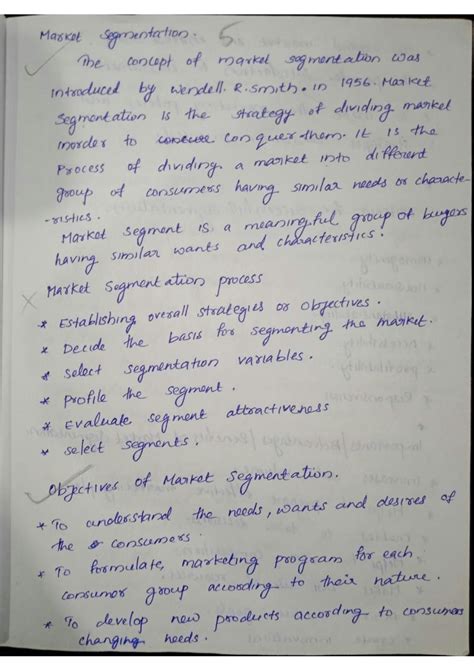 Market Segmentation. 5
The concept of market segmentation was
introduced by Wendell. R. Smith. in 1956. Market
Segmentation is the strategy of dividing market
inorder to conquer them. It is the
Process of dividing a market into different
group of consumers having similar needs or characte-
-ristics.
Market segment is a meaningful group of buyers
having similar wants and characteristics.
Market Segmentation process
* Establishing overall strategies or objectives.
* Decide the basis for segmenting the market.
* select segmentation variables.
* profile the segment.
* Evaluate segment attractiveness
* select segments.
Objectives of Market Segmentation.
* To understand the needs, wants and desires of
the consumers.
* To formulate, marketing program for each
consumor group according to their nature.
* To develop new products according to consumers
changing needs.